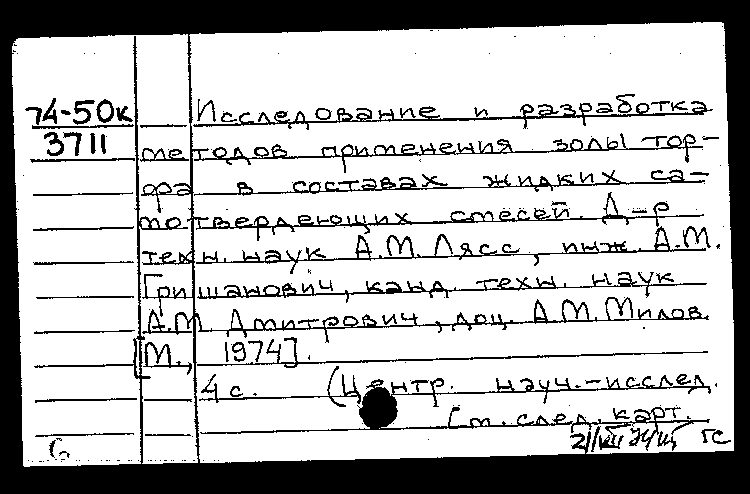 74-50к Исследование и разработка
3711 методов применения золы тор-
фа в составах жидких са-
мотвердеющих смесей. Д-р
техн. наук А.М. Лясс, инж. А.М.
Гришанович, канд. техн. наук
А.М. Дмитрович, доц. А.М. Милов.
[М., 1974].
4 с. (Центр. науч.-исслед.
См. след. карт.